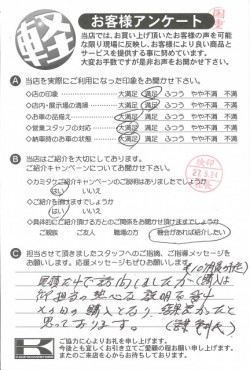 軽
お客様アンケート
当店では、お買い上げ頂いたお客様の声を可能
な限り現場に反映し、お客様により良い商品と
サービスを提供する事に努めています。
大変お手数ですが是非お声をお聞かせ下さい。
A 当店を実際にご利用になった印象をお聞かせ下さい。
◇店の印象 大満足 満足 ふつう やや不満 不満
◇店内・展示場の清掃 大満足 満足 ふつう やや不満 不満
◇お車の品揃え 大満足 満足 ふつう やや不満 不満
◇営業スタッフの対応 大満足 満足 ふつう やや不満 不満
◇納車時のお車の状態 大満足 満足 ふつう やや不満 不満
B 当店はご紹介を大切にしております。
ご紹介キャンペーンについてお聞かせ下さい。
◇カミタケご紹介キャンペーンのご説明はありましたでしょうか
はい いいえ
◇ご紹介を頂けますでしょうか
はい いいえ
◇具体的にご紹介頂ける方とのご関係をお聞かせ頂けますでしょうか
ご親族 ご友人 職場の方 機会があれば紹介したい
C 担当させて頂きましたスタッフへのご指摘、ご指導メッセージを
お願いします。応援メッセージもぜひお願いします。
見積だけで訪問しましたが
担当の熱心な説明で
の購入となり、
思っております。
ご協力に心よりお礼を申し上げます。
今後とも宜しくお引き立てご愛顧の程お願い申し上げます。
またのご来店を心からお待ちしております。